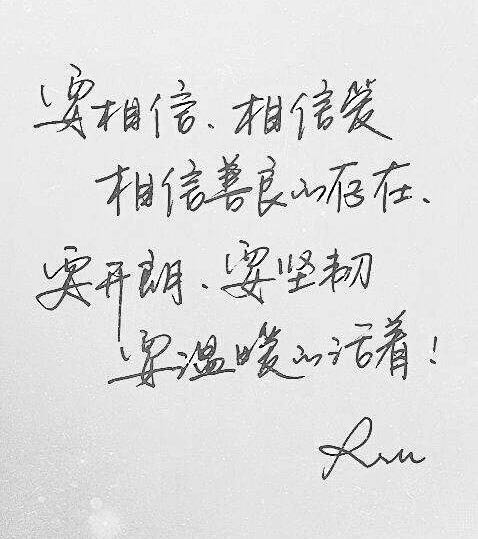 要相信、相信爱
相信善良的存在、
要开朗、要坚韧
要温暖的活着！